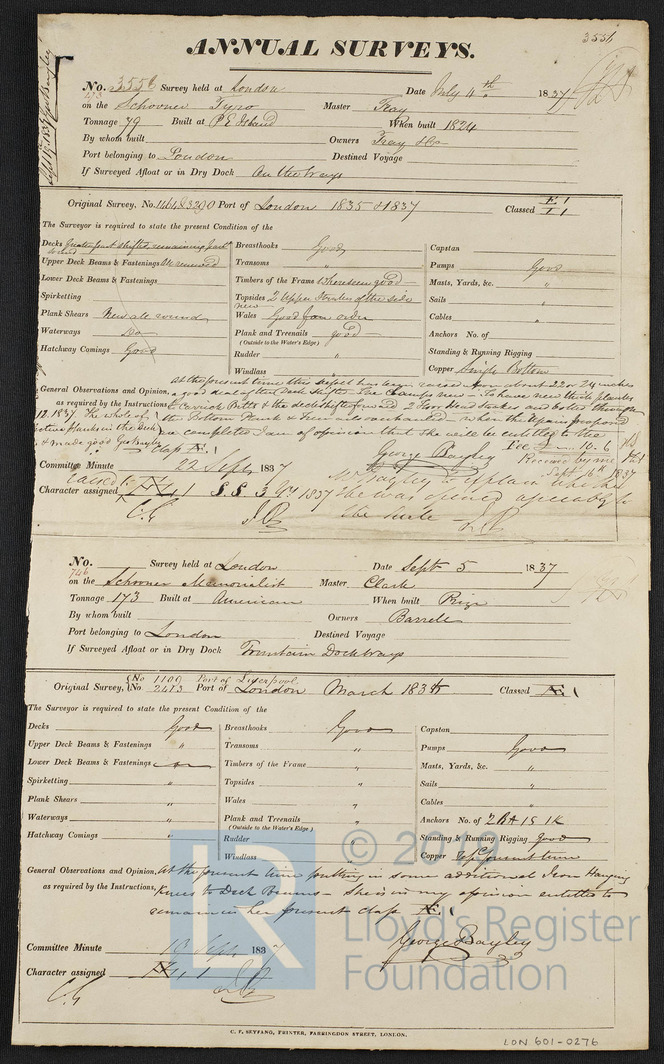 ANNUAL SURVEYS.
3556
No. 3556 Survey held at London Date July 4th 1837
on the Schooner Tyro Master Fray
Tonnage 79 Built at P E Island When built 1824
By whom built Owners Fray & Co
Port belonging to London Destined Voyage
If Surveyed Afloat or in Dry Dock On the ways
Original Survey, No. 1464 & 3290 Port of London 1835 & 1837 Classed Æ 1
The Surveyor is required to state the present Condition of the
Decks Greater part shifted remaining part sound
Upper Deck Beams & Fastenings renewed
Lower Deck Beams & Fastenings
Spirketting
Plank Shears New all round
Waterways Do
Hatchway Comings Good
Breasthooks Good
Transoms "
Timbers of the Frame where seen good
Topsides 2 Upper Strakes of the side new
Wales Good for order
Plank and Treenails good
(Outside to the Water's Edge)
Rudder "
Windlass "
Capstan
Pumps Good
Masts, Yards, &c. "
Sails "
Cables "
Anchors No. of
Standing & Running Rigging
Copper Single Bottom
General Observations and Opinion, at the present time this vessel has been raised from about 22 or 24 inches
a good deal of the Deck shifted
as required by the Instructions
& Carrick Bitts & the deck shifted forward
the Bottom overhauled when the repairs proposed
are completed I am of opinion that she will be entitled to the
& made good Geo Bayley Class Æ 1 Fee 10. 6
George Bayley Received by me
Sept 16th 1837
Committee Minute 22 Septr 1837
Mr Bayley to explain whether
Character assigned Æ 1 S.S. 3 Yrs 1837 she was opened agreeably to
the Rule
No. 746 Survey held at London Date Sept 5 1837
on the Schooner Memorialist Master Clark
Tonnage 173 Built at American When built Prize
By whom built Owners Barrell
Port belonging to London Destined Voyage
If Surveyed Afloat or in Dry Dock Fountain Dock ways
No 1100 Port of Liverpool
Original Survey, No 2413 Port of London March 1836 Classed Æ 1
The Surveyor is required to state the present Condition of the
Decks Good
Upper Deck Beams & Fastenings "
Lower Deck Beams & Fastenings
Spirketting "
Plank Shears "
Waterways "
Hatchway Comings "
Breasthooks Good
Transoms "
Timbers of the Frame "
Topsides "
Wales "
Plank and Treenails "
(Outside to the Water's Edge)
Rudder "
Windlass "
Capstan
Pumps Good
Masts, Yards, &c. "
Sails "
Cables "
Anchors No. of 2 B 1 S 1 K
Standing & Running Rigging good
Copper present time
General Observations and Opinion, At the present time putting in some additional Iron Hanging
as required by the Instructions, Knees to Deck Beams - She is in my opinion entitled to
remain in her present class Æ 1
George Bayley
Committee Minute 18 Septr 1837
Character assigned Æ 1
© 2019
LR
Lloyd's Register
Foundation
C. F. SEYFANG, PRINTER, FARRINGDON STREET, LONDON.
LON 601-0276